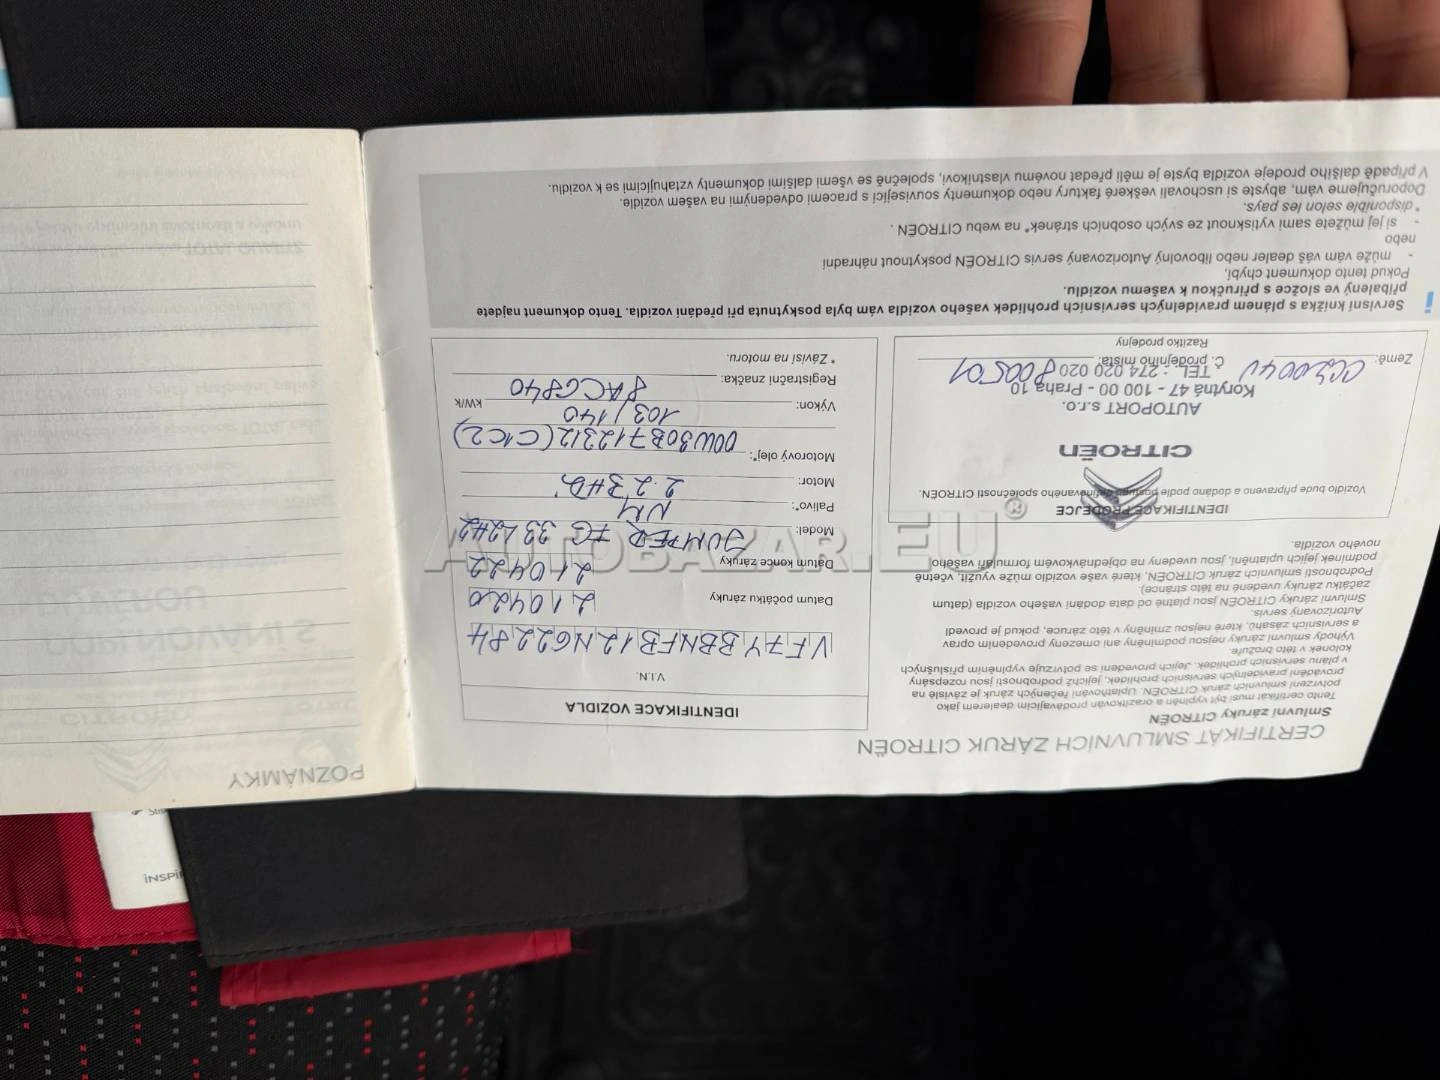 CERTIFIKÁT SMLUVNÍCH ZÁRUK CITROËN
Smluvní záruky CITROËN
Tento certifikát musí být vyplněn a orazítkován prodávajícím dealerem jako
potvrzení smluvních záruk CITROËN. Uplatňování řečených záruk je závislé na
provádění pravidelných servisních prohlídek, jejichž podrobnosti jsou rozepsány
v plánu servisních prohlídek. Jejich provedení se potvrzuje vyplněním příslušných
kolonek v této brožuře.
Výhody smluvní záruky nejsou podmíněny ani omezeny provedením oprav
a servisních zásahů, které nejsou zmíněny v této záruce, pokud je provedl
Autorizovaný servis.
Smluvní záruky CITROËN jsou platné od data dodání vašeho vozidla (datum
začátku záruky uvedené na této straně).
Podrobnosti smluvních záruk CITROËN, které vaše vozidlo může využít, včetně
podmínek jejich uplatnění, jsou uvedeny na objednávkovém formuláři vašeho
nového vozidla.
IDENTIFIKACE PRODEJCE
Vozidlo bude připraveno a dodáno podle postupu definovaného společností CITROËN.
CITROËN
AUTOPORT s.r.o.
Korytná 47 - 100 00 - Praha 10
TEL.: 274 020 020
Země:
Č. prodejního místa: 800501
Razítko prodejny
IDENTIFIKACE VOZIDLA
V.I.N.
VF7YBBNFB12N62284
Datum počátku záruky 210420
Datum konce záruky 210422
Model: JUMPER FG 33 L2H2
Palivo*: NM
Motor: 2.2 BHD
Motorový olej*: 00W30B712312 (C1C2)
Výkon: 103/140 kW/k
Registrační značka: 8AC6840
* Závisí na motoru.
i Servisní knížka s plánem pravidelných servisních prohlídek vašeho vozidla vám byla poskytnuta při předání vozidla. Tento dokument najdete
přibalený ve složce s příručkou k vašemu vozidlu.
Pokud tento dokument chybí,
- může vám váš dealer nebo libovolný Autorizovaný servis CITROËN poskytnout náhradní
nebo
- si jej můžete sami vytisknout ze svých osobních stránek* na webu CITROËN .
*disponible selon les pays.
Doporučujeme vám, abyste si uschovali veškeré faktury nebo dokumenty související s pracemi odvedenými na vašem vozidle.
V případě dalšího prodeje vozidla byste je měli předat novému vlastníkovi, společně se všemi dalšími dokumenty vztahujícími se k vozidlu.
POZNÁMKY
AUTOBAZAR.EU®
INSPI